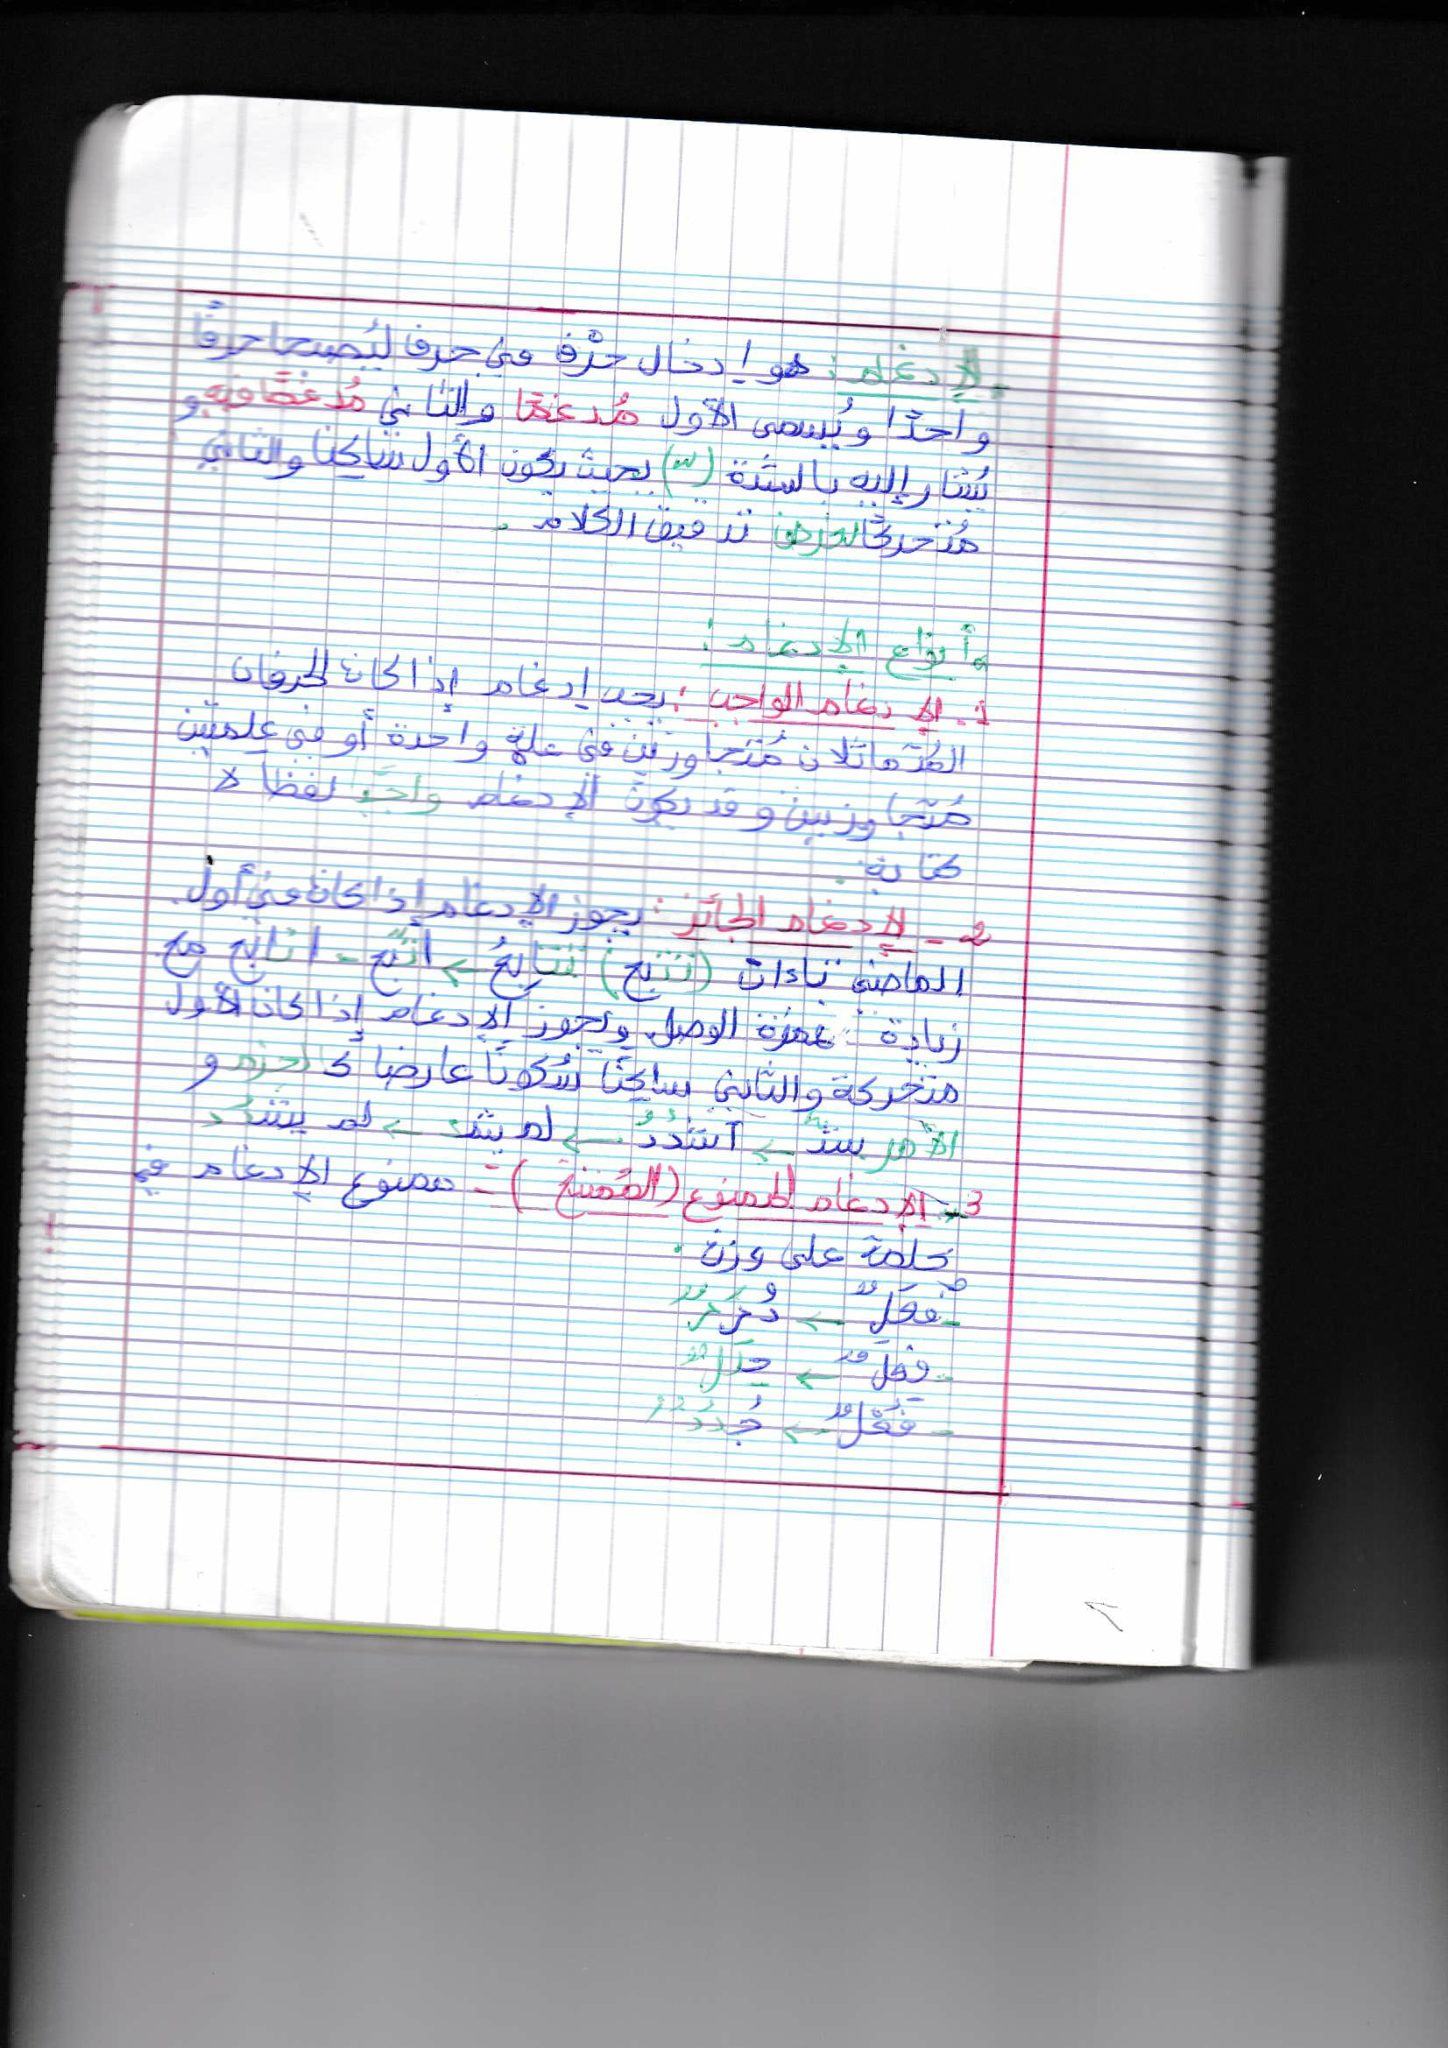 - الإدغام : هو إدخال حرْف في حرف ليُصبحا حرفًا
واحدًا ويُسمى الأول مُدغمًا والثاني مُدغمًا فيه و
يُشار إليه بالشدة ( ّ ) بحيث يكون الأول ساكنا والثاني
مُتحركًا لغرض تدقيق الكلام .
أنواع الإدغام :
1 - الإدغام الواجب : يجب إدغام إذا كان الحرفان
المُتماثلان مُتجاورَيْن في كلمة واحدة أو في كلمتين
مُتجاوزيين وقد يكون الإدغام واجبً لفظا لا
كتابة .
2 - الإدغام الجائز : يجوز الإدغام إذا كان في أول
الماضي تاءات (تتبع) تتابعُ ← اتّبع - اتابع مع
زيادة همزة الوصل ويجوز الإدغام إذا كان الأول
متحركة والثاني ساكنًا سُكونًا عارضا كالجزم و
الأمر شدّ ← اشدُدُ ← لم يشد ← لم يشدُد
3 - الإدغام الممنوع (المُمتنع) - ممنوع الإدغام في
كلمة على وزن .
- فُعَلٌ ← دُرَرٌ
- فعَلٌ ← حلَلٌ
- فُعُلٌ ← جُدُدٌ